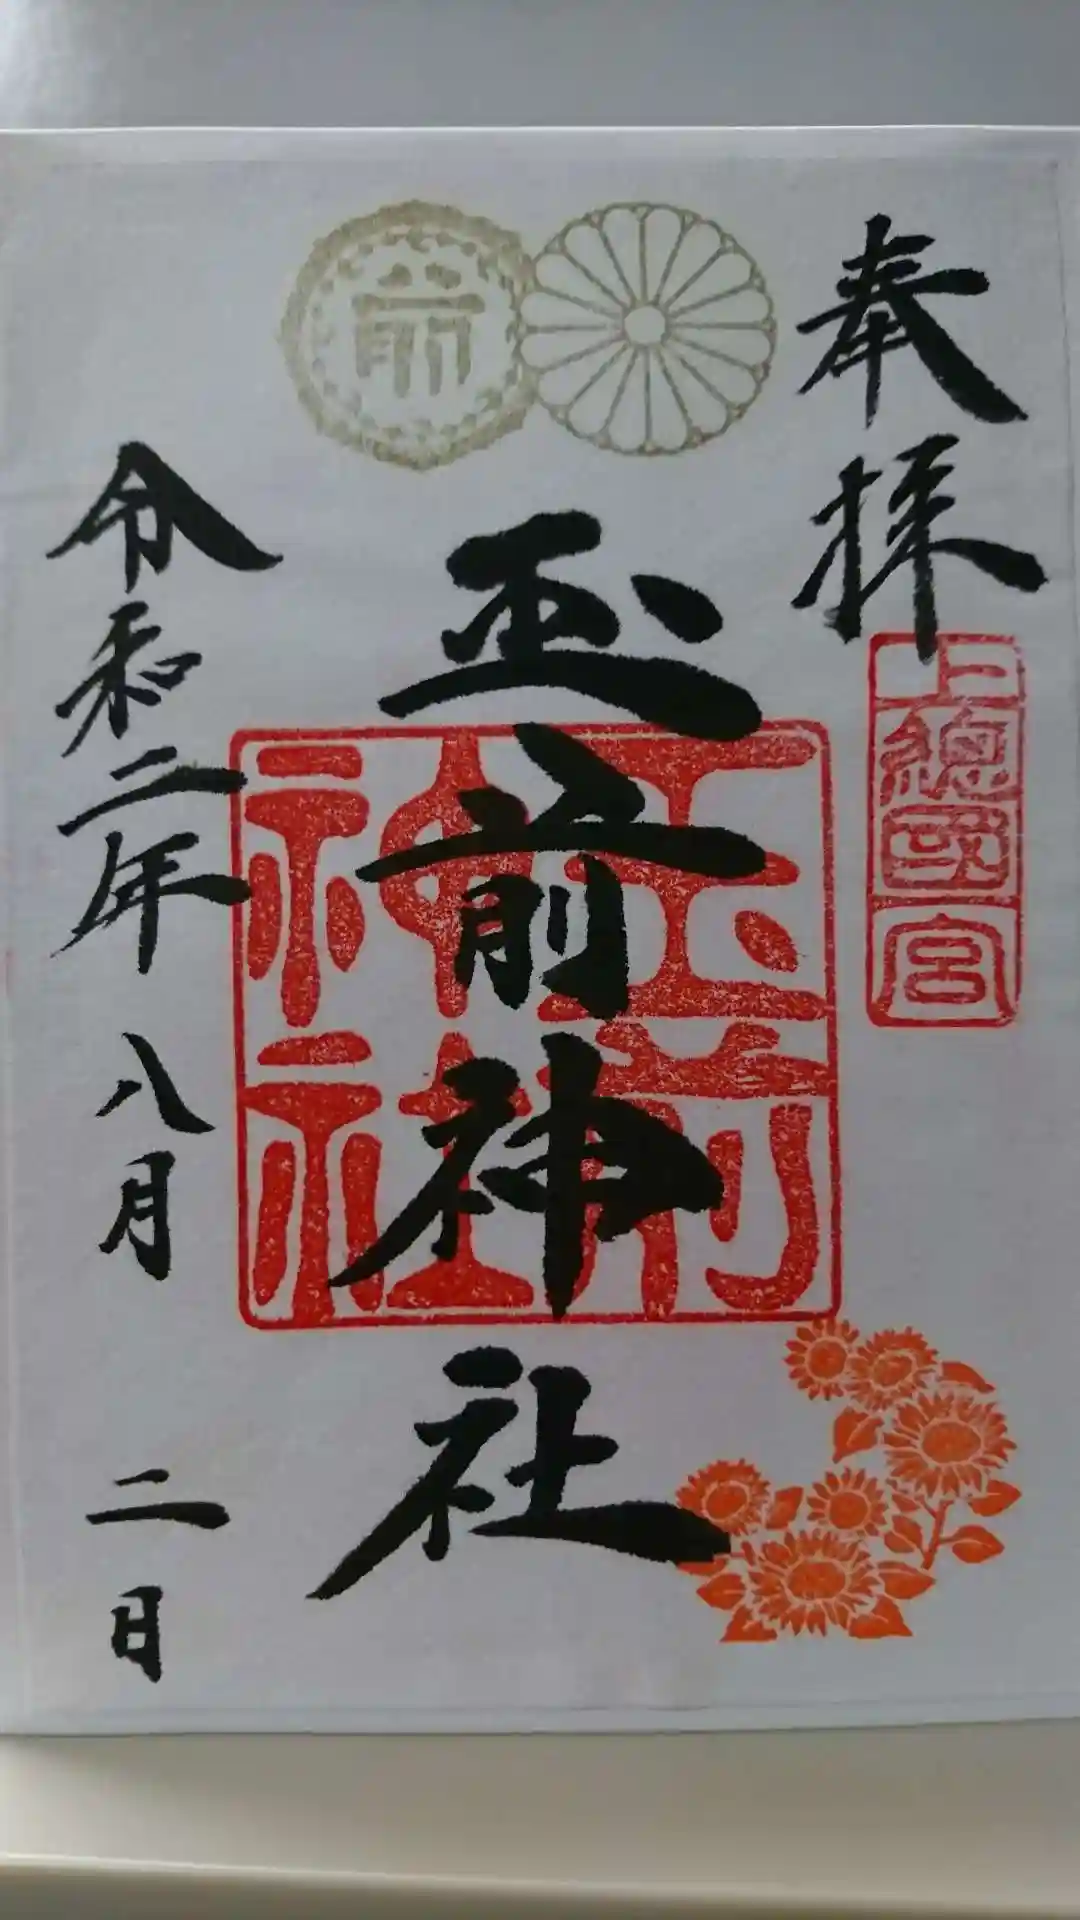 奉拝
上總國一宮
前
玉前神社
玉前神社
令和二年八月二日